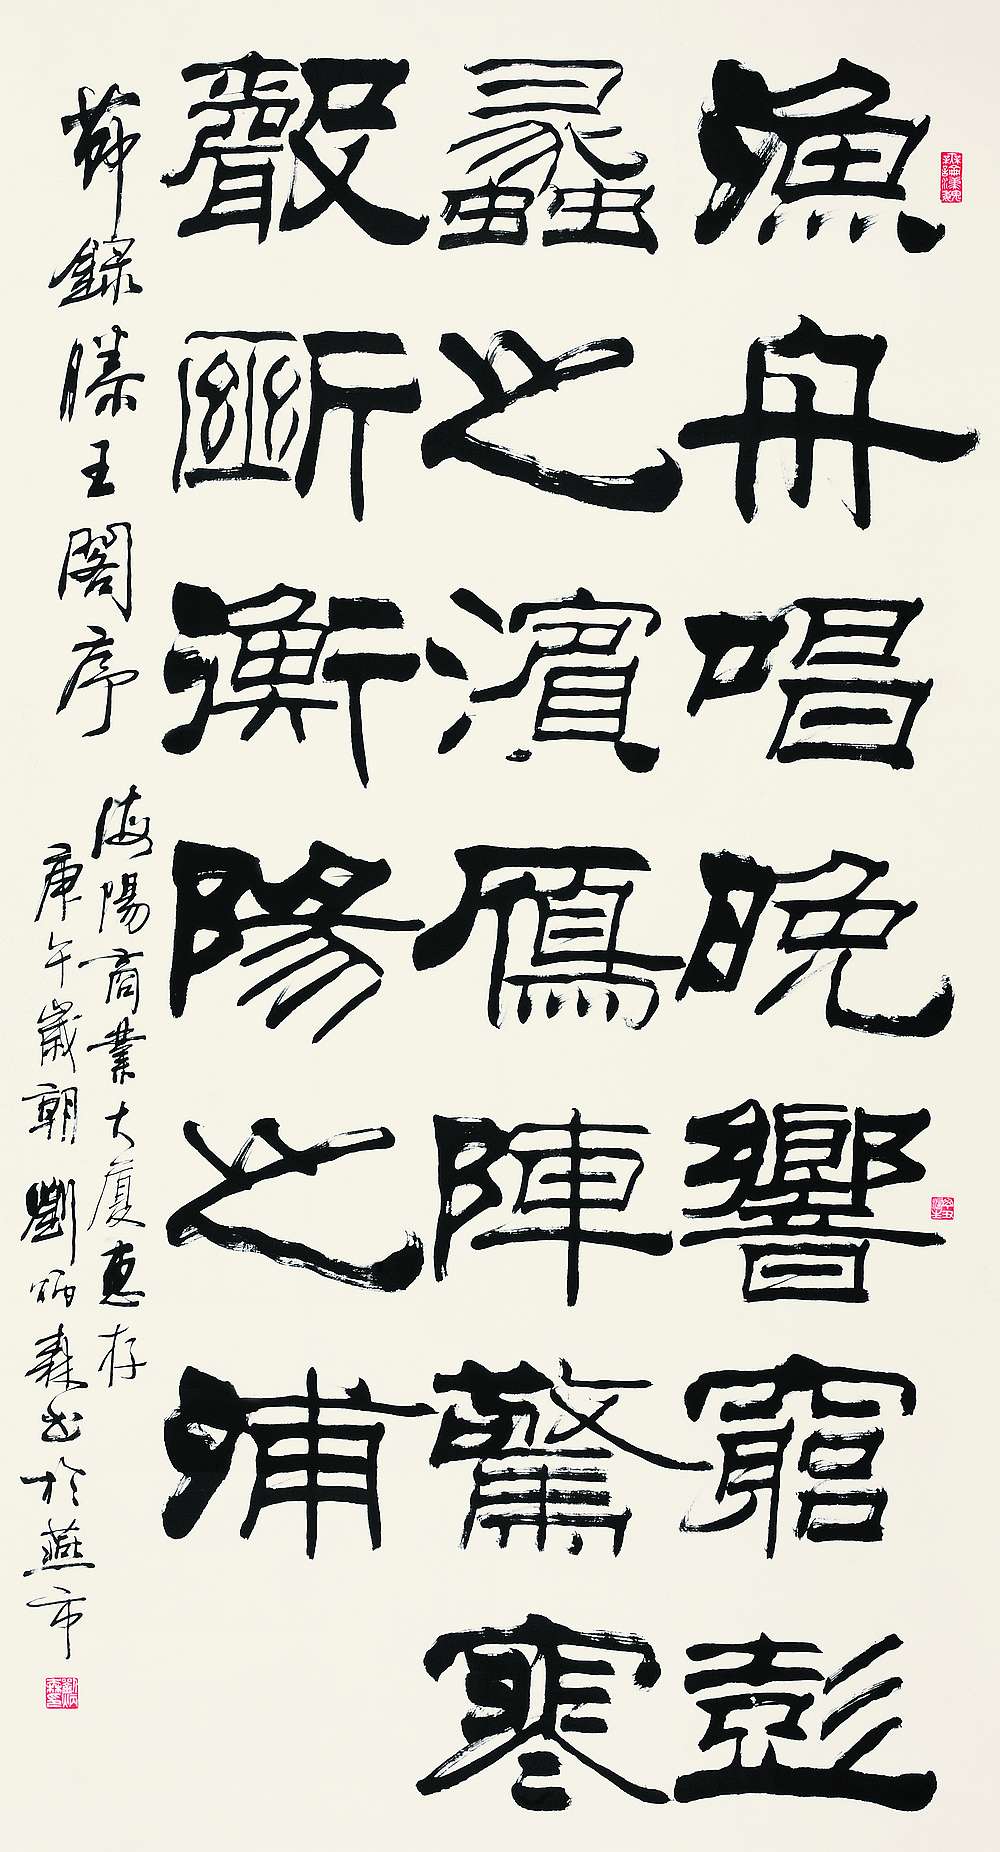 漁舟唱晚響窮彭
蠡之濱鴈陣驚寒
聲斷衡陽之浦
節録滕王閣序
海陽商業大廈惠存
庚午歲朝劉炳森书於燕市